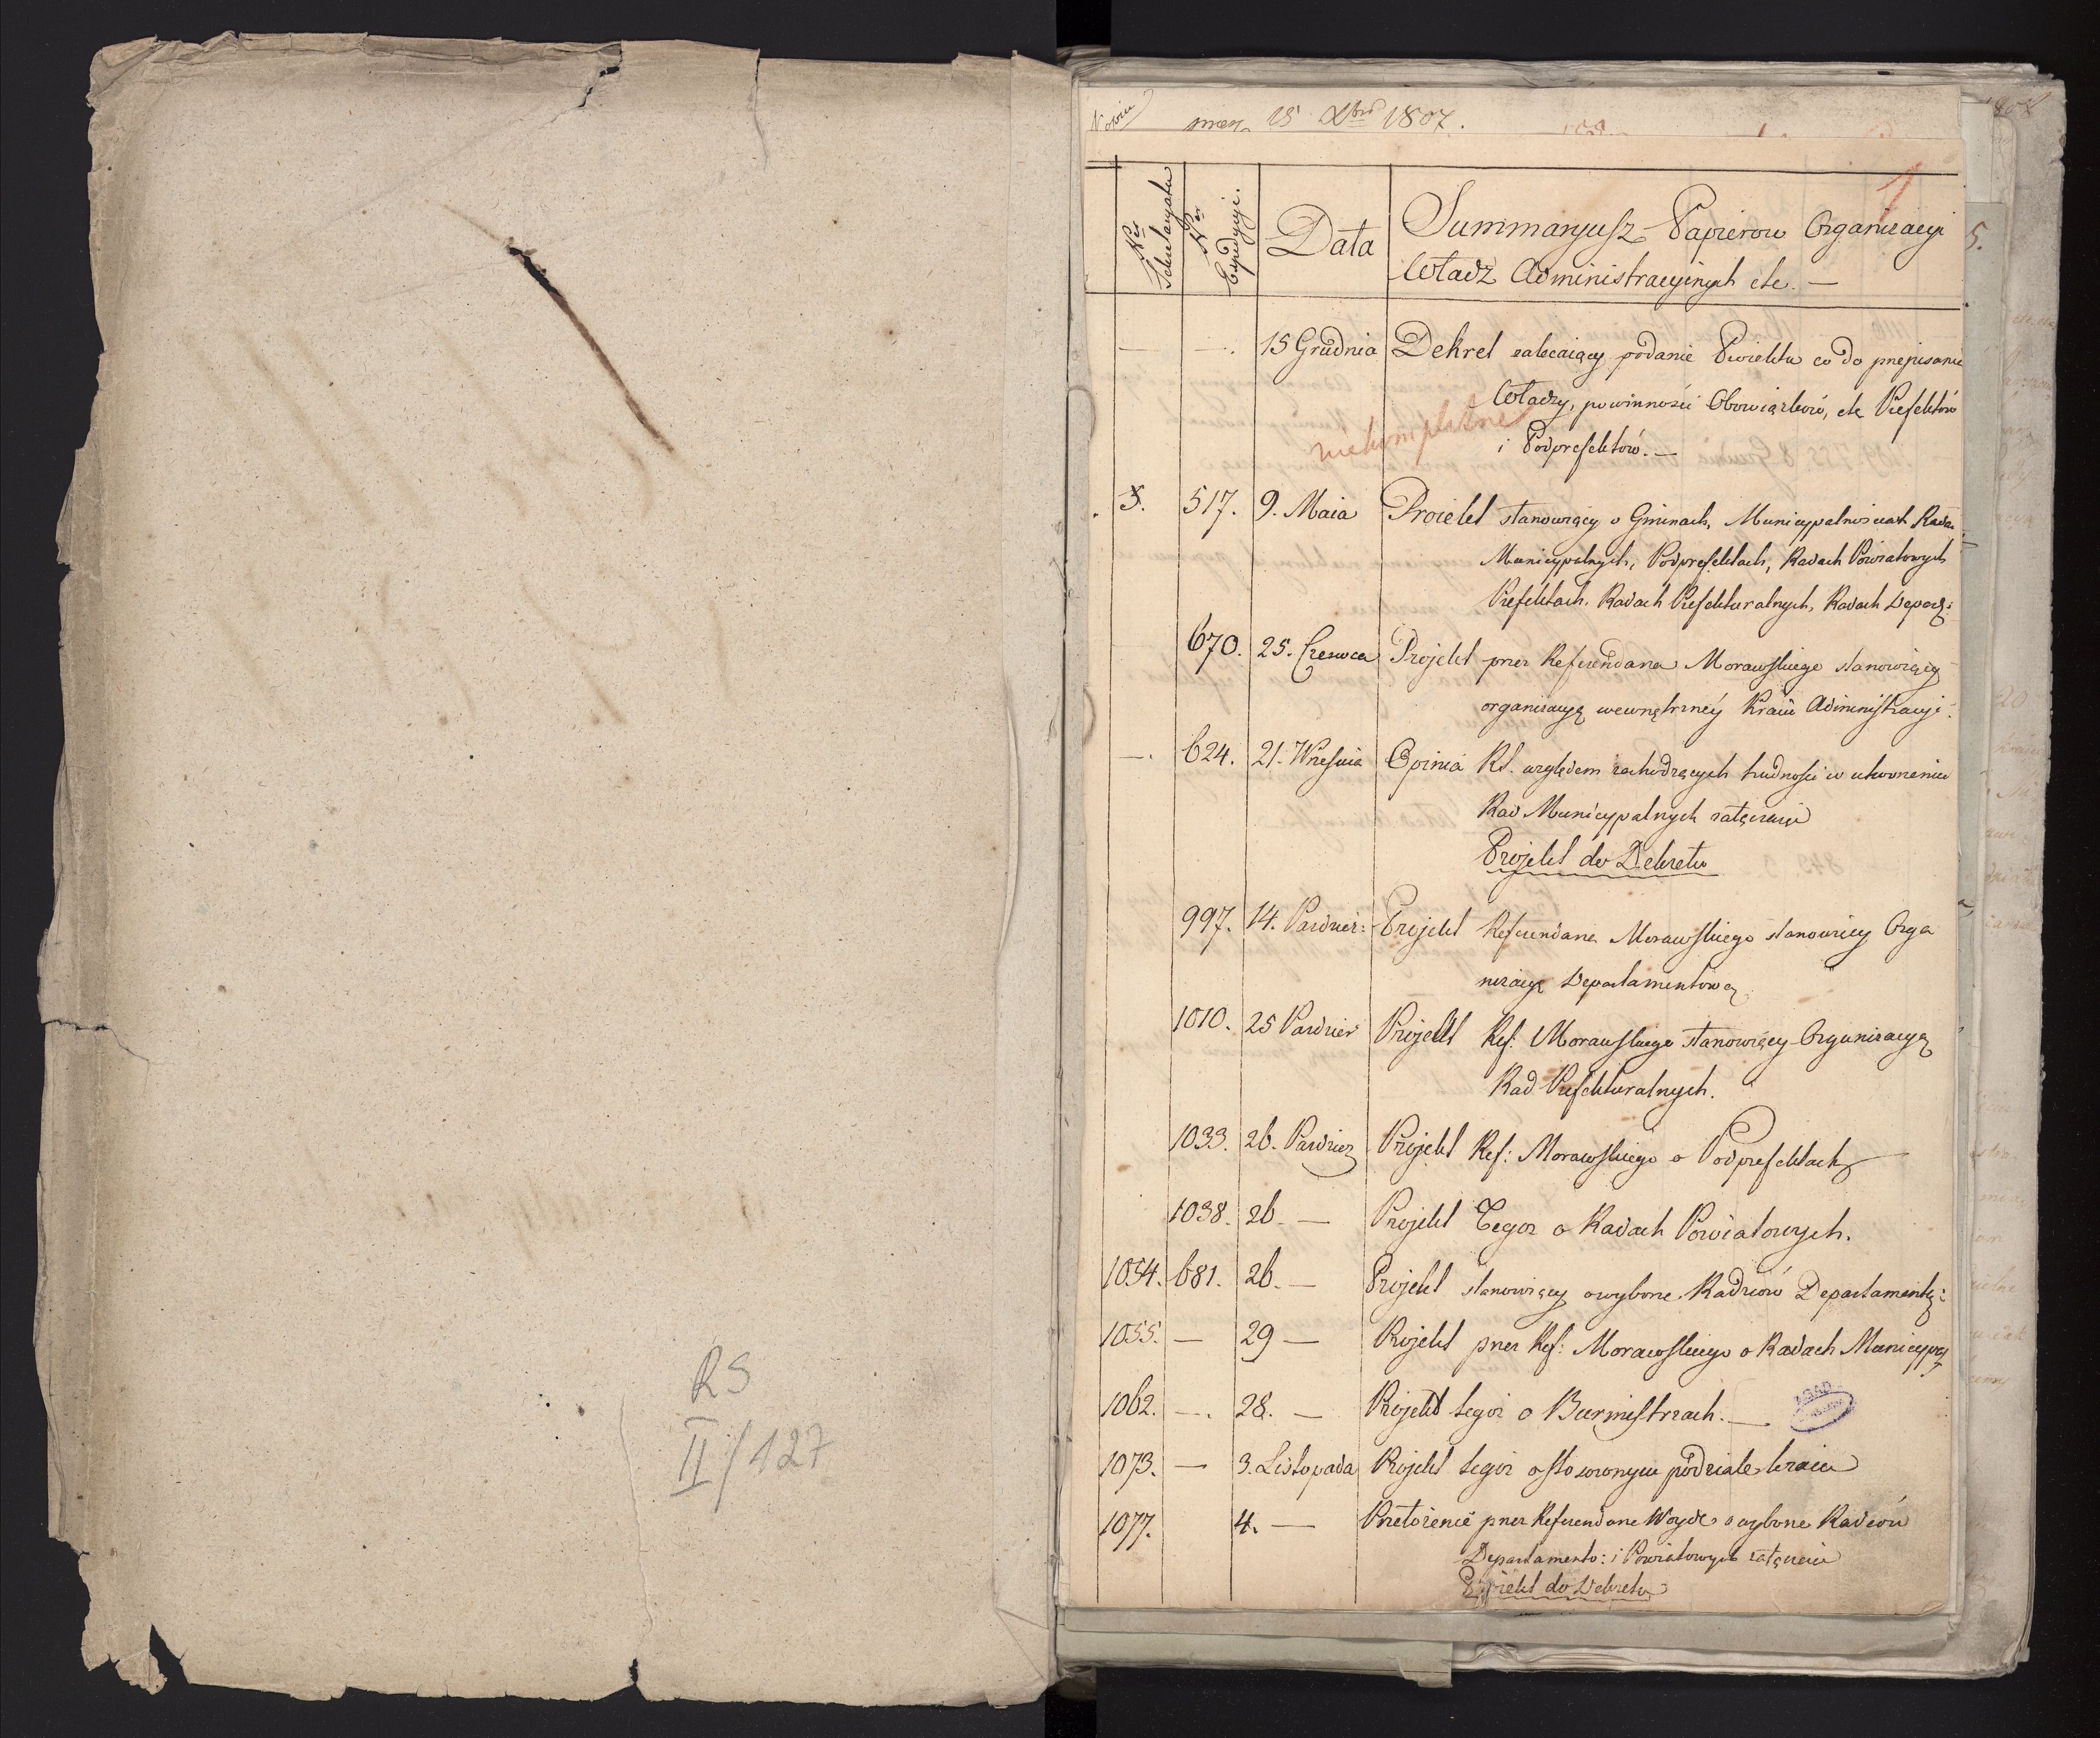 RS
II/127
15 Xbris 1807.
1
Nro Sekretaryatu
Nro Expedycyi.
Data
Summaryusz Papierow Organizacyi
Władz Administracyinych etc. —
— —. 15 Grudnia Dekret zalecaiący podanie Proiektu co do przepisania
Władzy, powinności Obowiązków, etc Prefektów
niekompletne
i Podprefektów. —
5. 517. 9. Maia Proiekt stanowiący o Gminach, Municypalnościach Rada
Municypalnych, Podprefektach, Radach Powiatowych
Prefektach, Radach Prefekturalnych, Radach Depart:
670. 25. Czerwca Projekt przez Referendarza Morawskiego stanowiący
organizacyą wewnętrznéy Kraiu Administracyi.
—. 624. 21. Września Opinia RS. względem zachodzących trudności w utworzeniu
Rad Municypalnych załączaiąc
Projekt do Dekretu
997. 14. Pazdzier: Projekt Referendarza Morawskiego stanowiący Orga
nizacyę Departamentową
1010. 25 Pazdzier Projekt Ref: Morawskiego stanowiący Organizacyą
Rad Prefekturalnych.
1033. 26. Pazdzier Projekt Ref: Morawskiego o Podprefektach
1038. 26. — Projekt Tegoz o Radach Powiatowych.
1054. 681. 26. — Projekt stanowiący o wyborze Radzców Departamentt:
1055. — 29 — Projekt przez Ref: Morawskiego o Radach Municyp:
1062. —. 28. — Projekt tegoż o Burmistrzach. —
1073. — 3. Listopada Projekt tegoż o stosownym podziale kraiu
1077. 4. — Przełożenie przez Referendarza Woyde o wyborze Radzców
Departamento: i Powiatowych załączaiąc
Projekt do Dekretu
5.